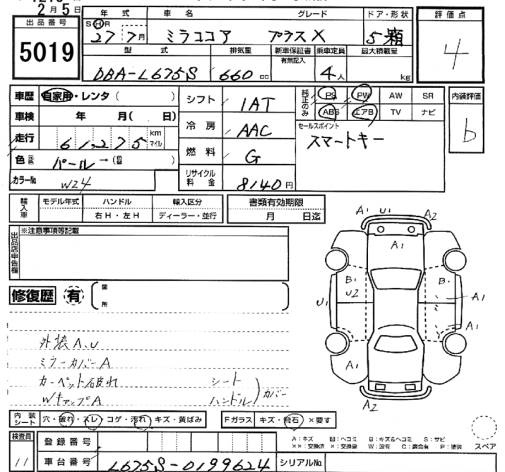 2月5日
出品番号
5019
年式 車名 グレード ドア・形状
SH 27年7月 ミラココア プラスX 5扉
型式 排気量 新車保証書 乗車定員 最大積載量
有無記入
DBA-L675S 660cc 4人 kg
評価点
4
車歴 自家用・レンタ( )
車検 年 月( 日)
走行 61,275 km マイル
色 パール→(
カラーNo W24
シフト IAT
冷房 AAC
燃料 G
リサイクル料金 8140円
純正のみ PS PW AW SR
ABS エアB TV ナビ
セールスポイント
スマートキー
内装評価
b
輸入車 モデル年式 ハンドル 輸入区分
右H・左H ディーラー・並行
書類有効期限
月 日迄
出品店申告欄 ※注意事項等記載
修復歴 有 箇所
A1 U1 A2
A1
B1 U2
U1
A1
A1
A1
A1
A2
外装A、U
ミラーカバーA
カーペット破れ シート
WtアップA ハンドル カバー
内装 シート 穴・破れ・スレ・コゲ・汚れ・キズ・黄ばみ
Fガラス キズ・飛石・×要す
検査員 11
登録番号
車台番号 L675S-0199624 シリアルNo
スペア